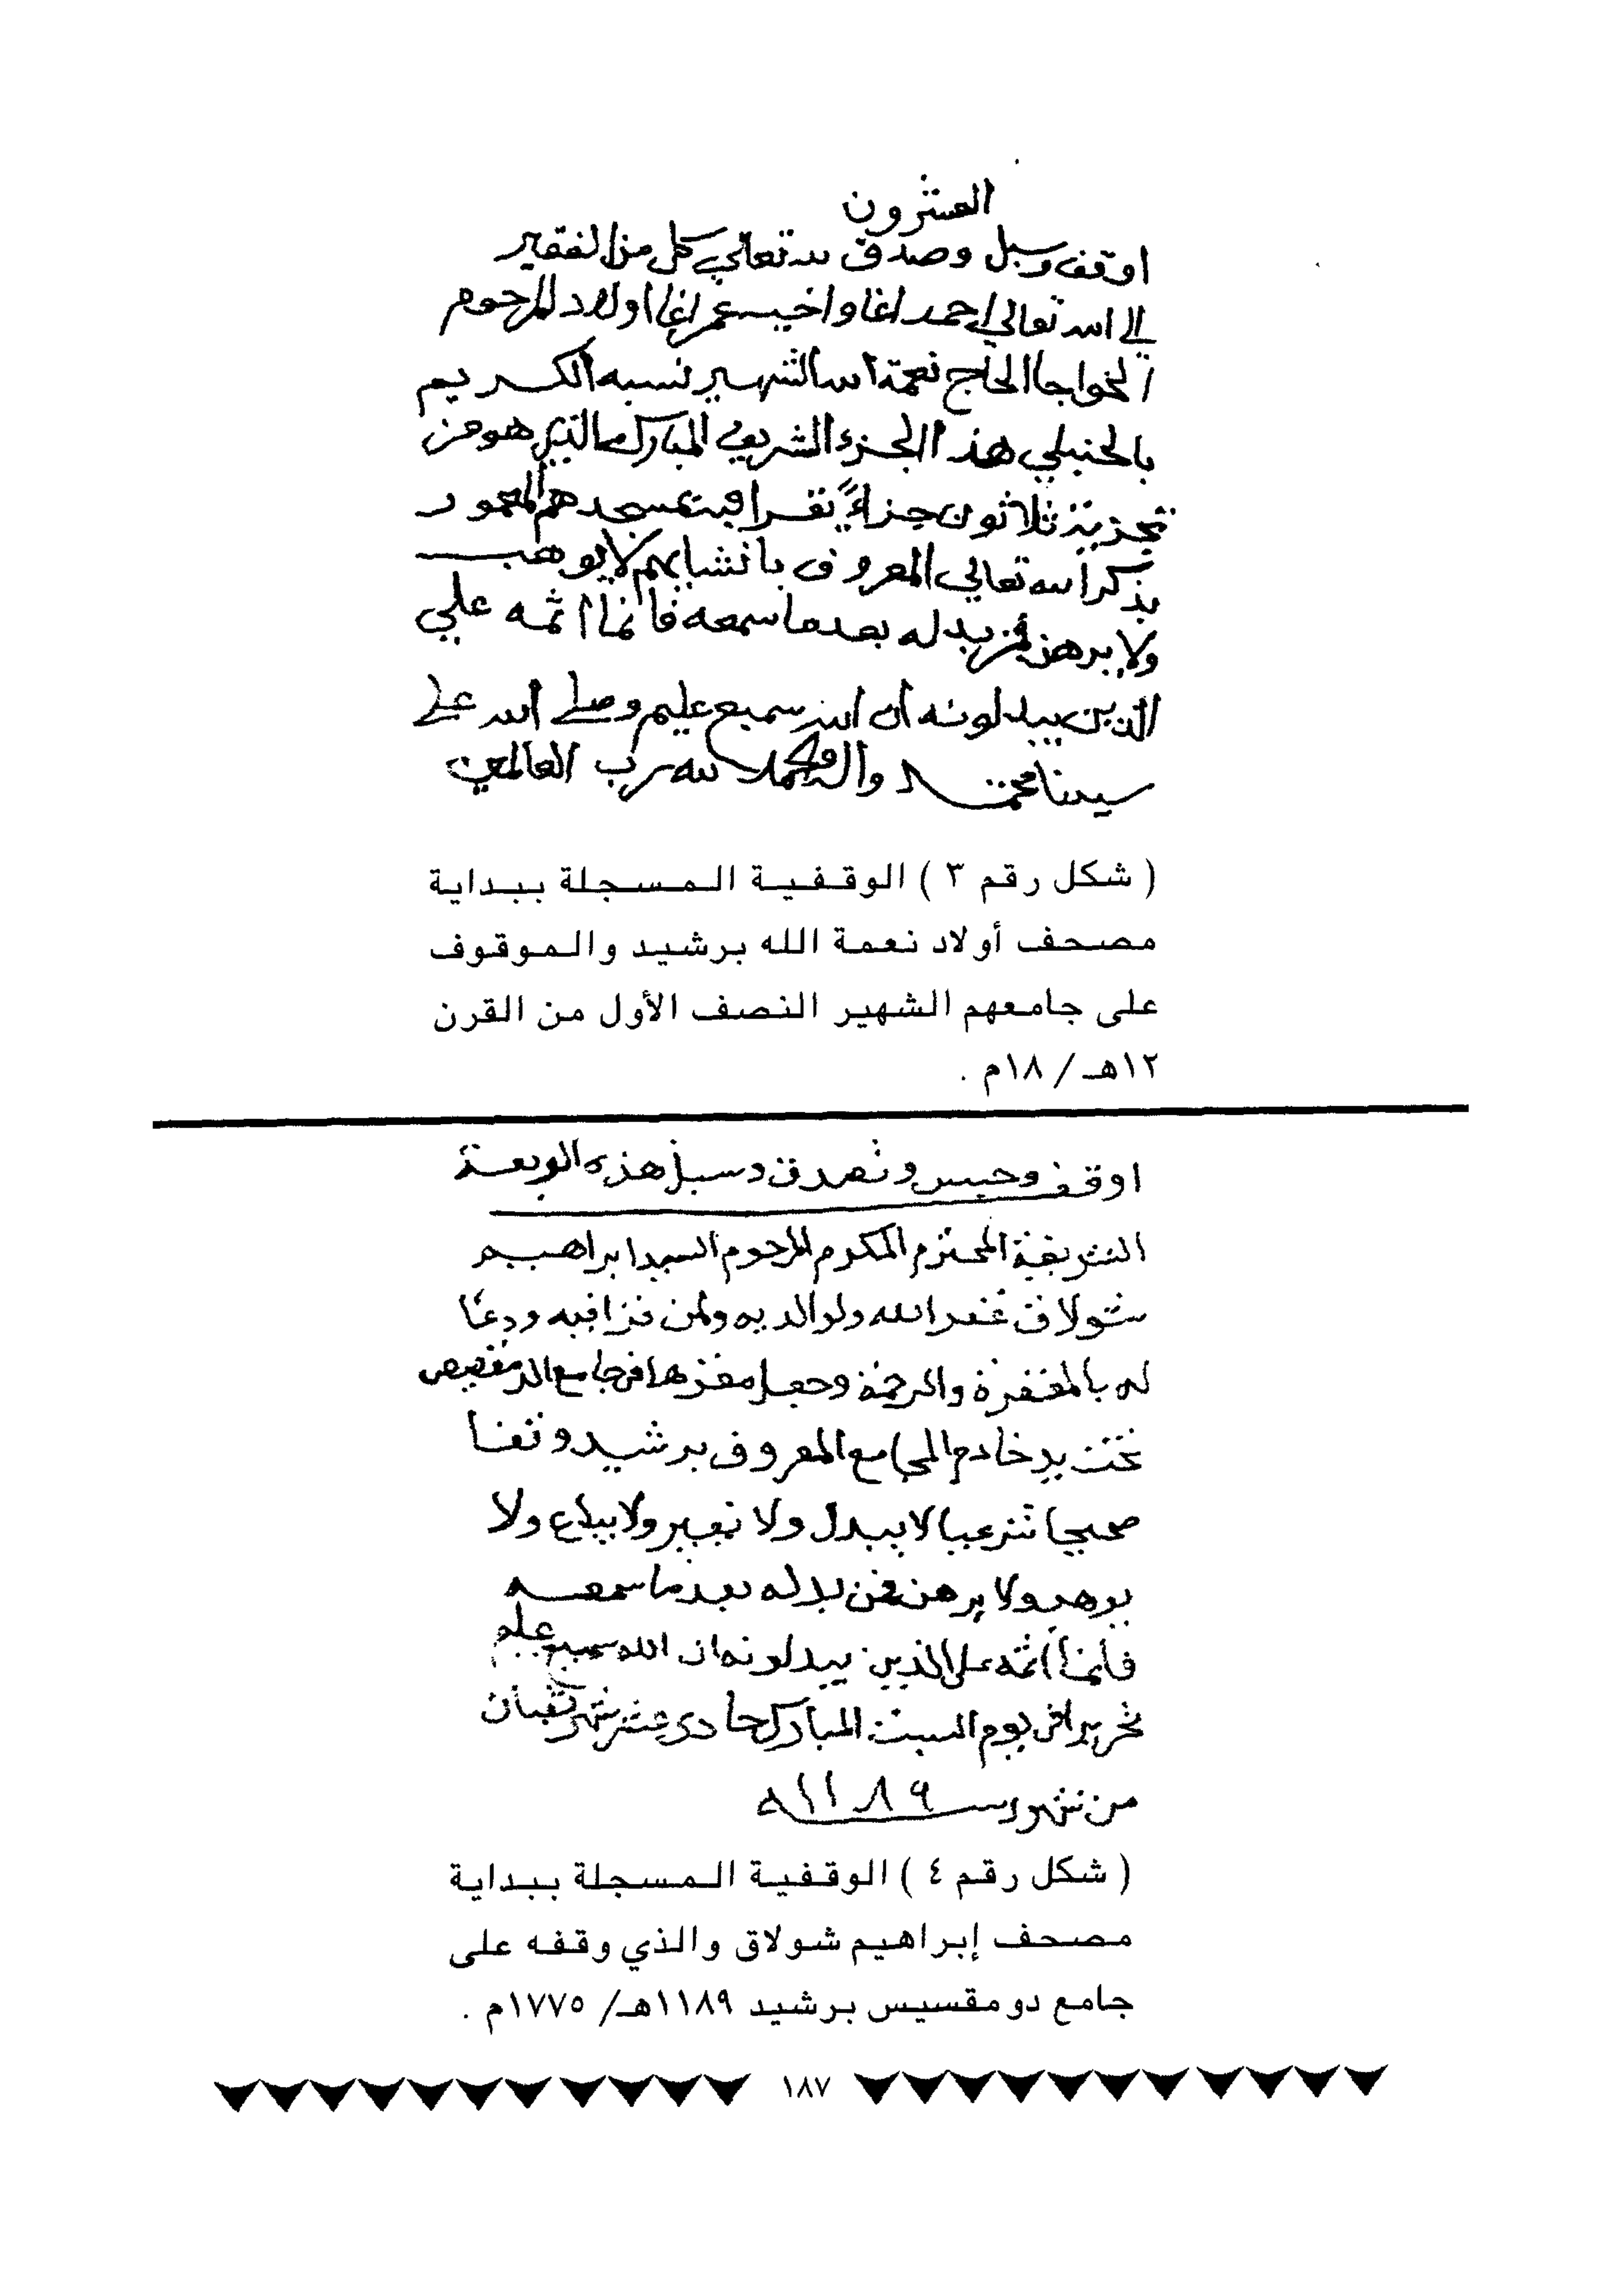 العشرون
اوقف وسبل وصدق لله تعالي كل من الفقير
الي الله تعالي احمد اغا واخيه عمر اغا اولاد المرحوم
الخواجا الحاج نعمة الله الشهير نسبه الكريم
بالحنبلي هذا الجزء الشريف المبارك الذي هو من
تجزية ثلاثون جزاءً يقرا فيه بمسجدهم المعمور
بذكر الله تعالي المعروف بانشايهم لا يوهب
ولا يرهن فمن بدله بعد ما سمعه فانما اثمه علي
الذين يبدلونه ان الله سميع عليم وصلي الله علي
سيدنا محمد واله والحمد لله رب العالمين
( شكل رقم ٣ ) الوقفية المسجلة ببداية
مصحف أولاد نعمة الله برشيد والموقوف
على جامعهم الشهير النصف الأول من القرن
١٢هـ / ١٨م .
اوقف وحبس وتصدق وسبل هذه الربعة
الشريفة المحترم المكرم المرحوم السيد ابراهيم
شولاق غفر الله ولوالديه ولمن قرا فيه ودعا
له بالمغفرة والرحمة وجعل مقرها في جامع الدمقصيص
تحت يد خادم الجامع المعروف برشيد وقفا
صحيحا شرعيا لا يبدل ولا يغير ولا يباع ولا
يوهب ولا يرهن فمن بدله بعد ما سمعه
فانما اثمه على الذين يبدلونه ان الله سميع عليم
تحريرا في يوم السبت المبارك حادي عشر شهر شعبان
من شهور سنة ١١٨٩
( شكل رقم ٤ ) الوقفية المسجلة ببداية
مصحف إبراهيم شولاق والذي وقفه على
جامع دومقسيس برشيد ١١٨٩هـ/ ١٧٧٥م .
١٨٧